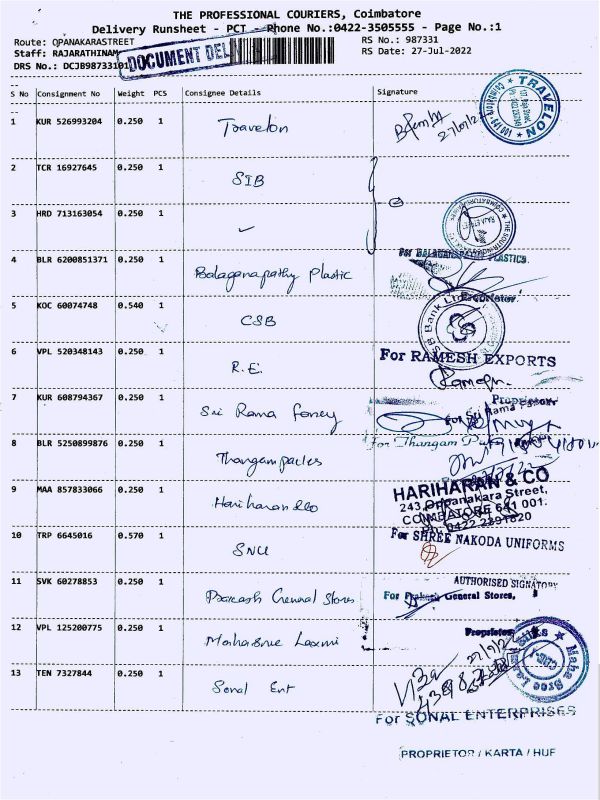 THE PROFESSIONAL COURIERS, Coimbatore
Delivery Runsheet - PCT - Phone No.:0422-3505555 - Page No.:1
Route: OPANAKARASTREET RS No.: 987331
Staff: RAJARATHINAM RS Date: 27-Jul-2022
DRS No.: DCJB98733101
DOCUMENT DEL
S No Consignment No Weight PCS Consignee Details Signature
1 KUR 526993204 0.250 1 Travelon
TRAVELON
27/07/2
2 TCR 16927645 0.250 1 SIB
3 HRD 713163054 0.250 1 ✓
4 BLR 6200851371 0.250 1 Balaganapathy Plastic
For BALAGANAPATHY PLASTICS
Proprietor
5 KOC 60074748 0.540 1 CSB
Bank Ltd
6 VPL 520348143 0.250 1 R.E.
For RAMESH EXPORTS
Proprietor
7 KUR 608794367 0.250 1 Sri Rama fancy
For Sri Rama
8 BLR 5250899876 0.250 1 Thangam parles
For Thangam
9 MAA 857833066 0.250 1 Hariharan &co
HARIHARAN & CO
243, Oppanakara Street,
COIMBATORE 641 001.
Ph: 0422 2391820
10 TRP 6645016 0.570 1 SNU
For SHREE NAKODA UNIFORMS
AUTHORISED SIGNATORY
11 SVK 60278853 0.250 1 Parcash General Stores
For Prakash General Stores,
Proprietor
12 VPL 125200775 0.250 1 Mahasree Laxmi
27/7/2
Maha Sree La
13 TEN 7327844 0.250 1 Sonal Ent
For SONAL ENTERPRISES
PROPRIETOR / KARTA / HUF